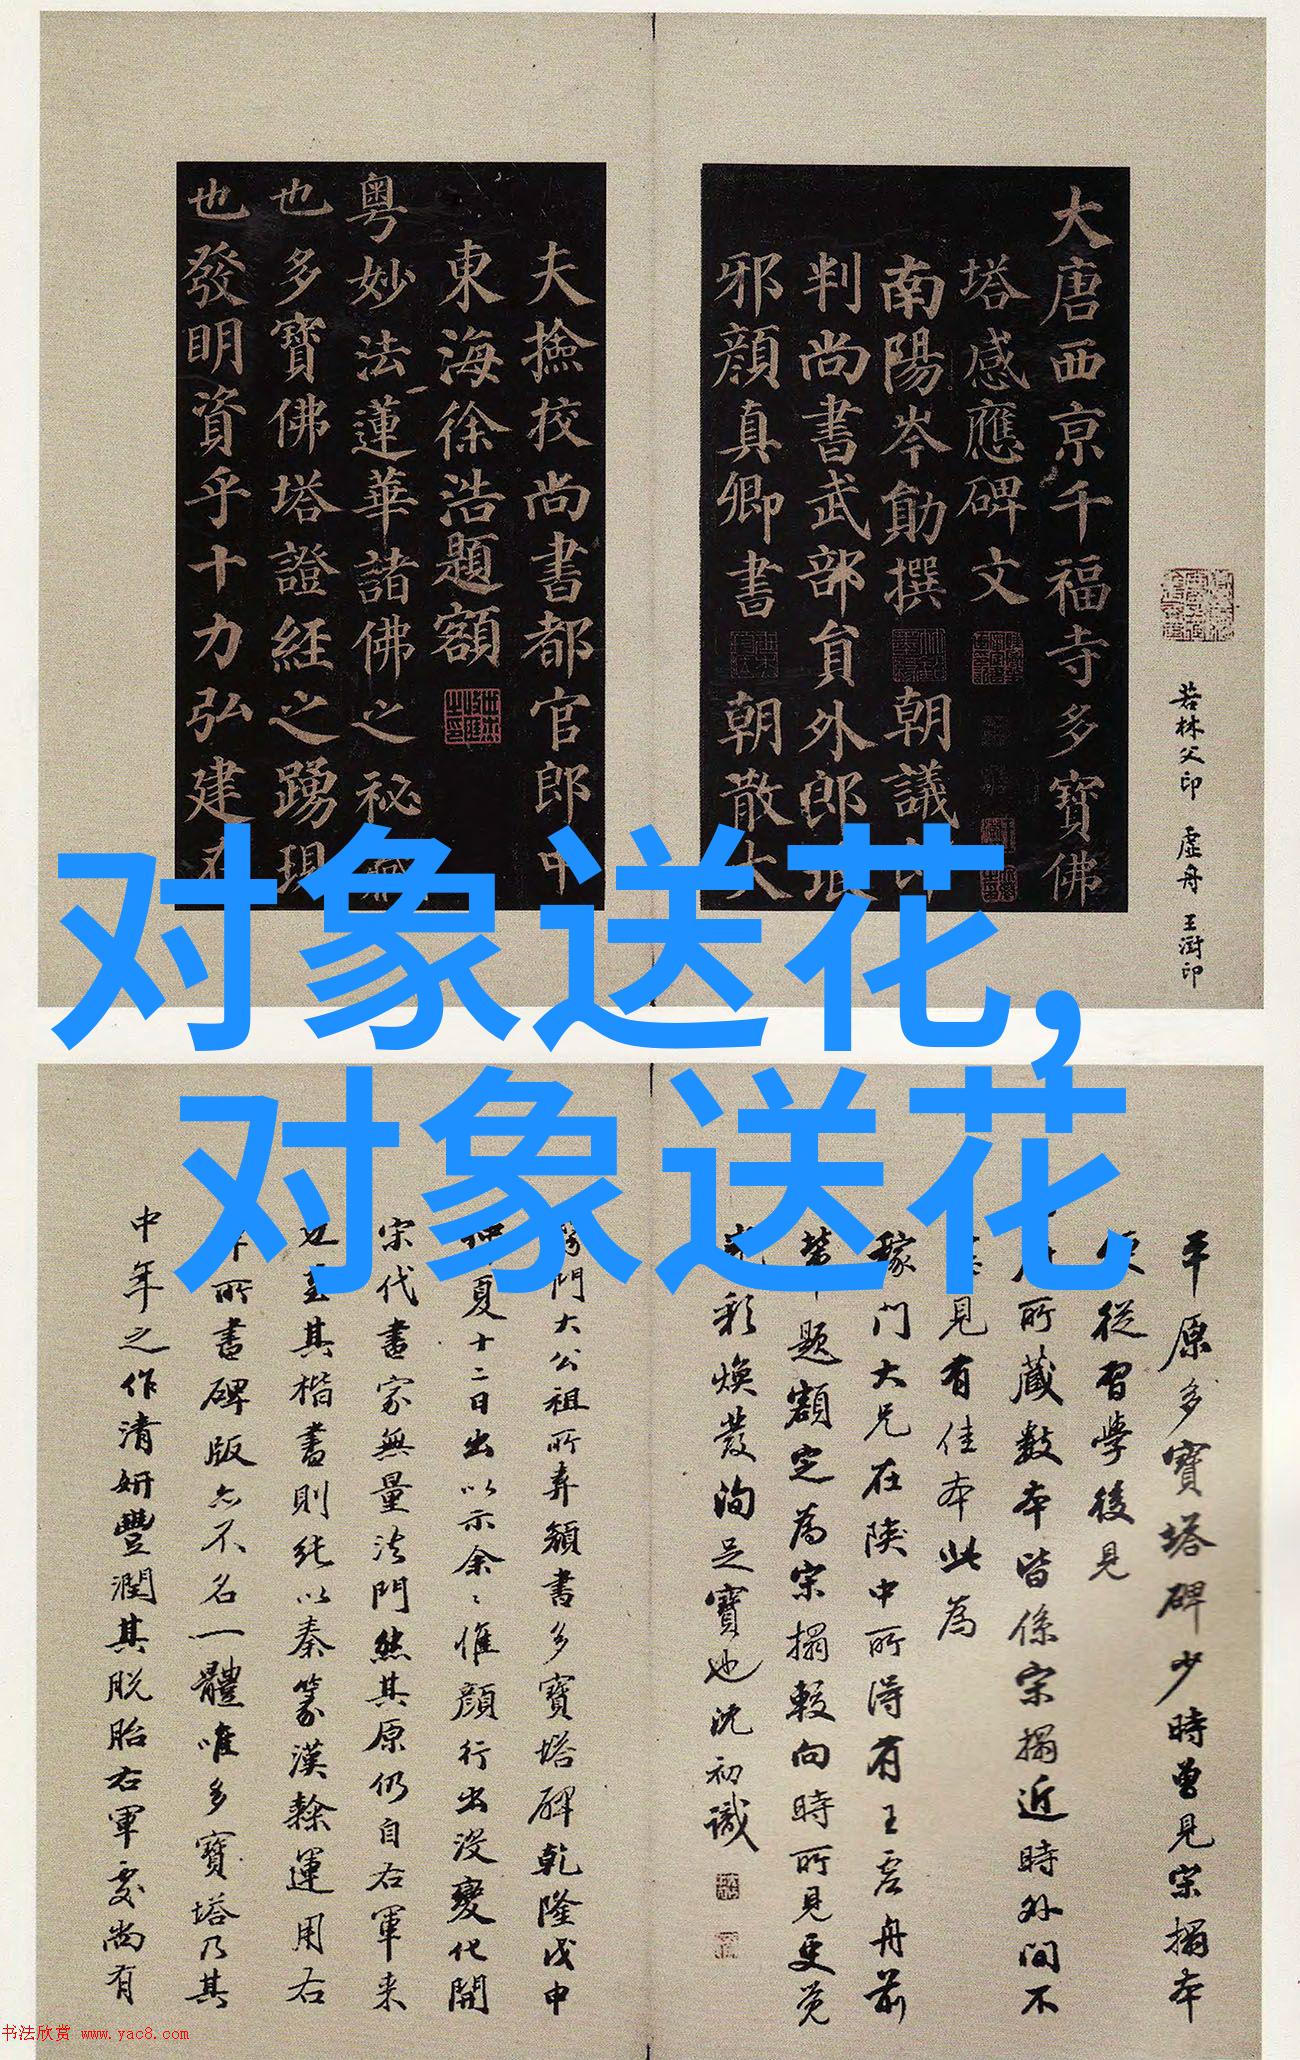 大唐西京千福寺多寶佛
塔感應碑文
南陽岑勛撰 朝議郎
判尚書武部員外郎琅
邪顏真卿書 朝散大
夫撿挍尚書都官郎中
東海徐浩題額
粵妙法蓮華諸佛之秘
也多寶佛塔證經之踴現
也發明資乎十力弘建在
若林父印 虛舟 王澍印
对象送花,
对象送花
平原多寶塔碑少時曾見宋搨本
從習學後見
所藏數本皆係宋搨近時外間不
見有佳本此為
稼門大兄在陝中所得有王虛舟前
題額定為宋搨較向時所見更覺
彩煥發洵足寶也沈初識
門大公祖所弆顏書多寶塔碑乾隆戊申
夏十二日出以示余〻惟顏行出沒變化開
宋代書家無量法門然其原仍自右軍来
也至其楷書則純以秦篆漢隸運用右
所書碑版亦不名一體唯多寶塔乃其
中年之作清妍豐潤其脫胎右軍處尚有
书法欣赏 www.yac8.com